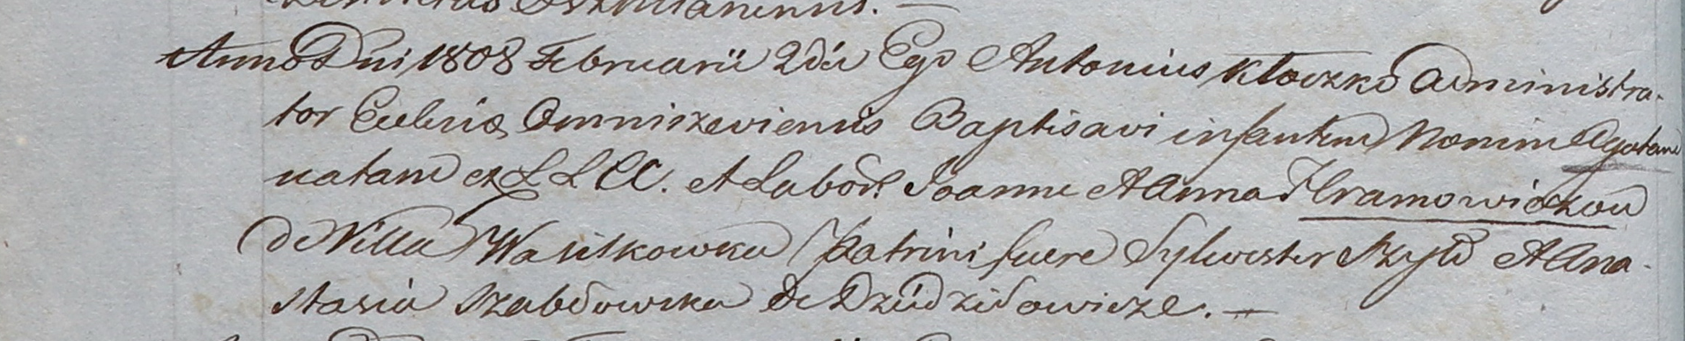 Anno Dni 1808 Februarii 2da Ego Antonius Kłoczko Administra-
tor Ecclesiæ Omniszeviensis Baptisavi infantem Nomine Agatam
natam ex L L CC. et Labor. Joanne et Anna Hramowiczow
de Villa Wasilkowka Patrini fuere Sylwester Szyło et Ana-
stasia Szabłowska de Dzúdziłowicze. —